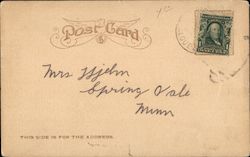 Post Card
Mrs Hjelm
Spring Vale
Minn
THIS SIDE IS FOR THE ADDRESS.